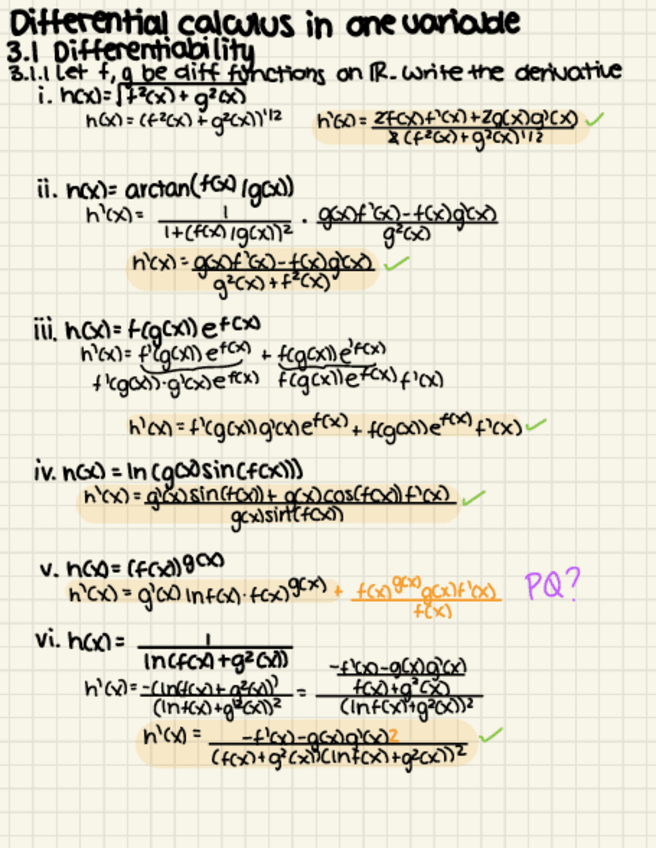 Differential calculus in one variable
3.1 Differentiability
3.1.1 Let f, g be diff functions on ℝ. Write the derivative
i. h(x)=√f²(x) + g²(x)
h(x) = (f²(x) + g²(x))^1/2   h'(x) = 2f(x)f'(x)+2g(x)g'(x) / 2(f²(x)+g²(x))^1/2 ✓
ii. h(x)= arctan(f(x)/g(x))
h'(x) = 1 / 1+(f(x)/g(x))² · g(x)f'(x)-f(x)g'(x) / g²(x)
h'(x) = g(x)f'(x)-f(x)g'(x) / g²(x)+f²(x) ✓
iii. h(x)= f(g(x))e^f(x)
h'(x) = f'(g(x))e^f(x) + f(g(x))e'^f(x)
f'(g(x))·g'(x)e^f(x)   f(g(x))e^f(x) f'(x)
h'(x) = f'(g(x))g'(x)e^f(x) + f(g(x))e^f(x) f'(x) ✓
iv. h(x) = ln(g(x)sin(f(x)))
h'(x) = g'(x)sin(f(x)) + g(x)cos(f(x))f'(x) / g(x)sin(f(x)) ✓
v. h(x) = (f(x))^g(x)
h'(x) = g'(x) lnf(x)·f(x)^g(x) + f(x)^g(x) g(x)f'(x) / f(x)   PQ?
vi. h(x) = 1 / ln(f(x)+g²(x))
h'(x) = -(ln(f(x)+g²(x))' / (lnf(x)+g²(x))² = -f'(x)-g(x)g'(x) / f(x)+g²(x) / (lnf(x)+g²(x))²
h'(x) = -f'(x)-g(x)g'(x)2 / (f(x)+g²(x))(lnf(x)+g²(x))² ✓